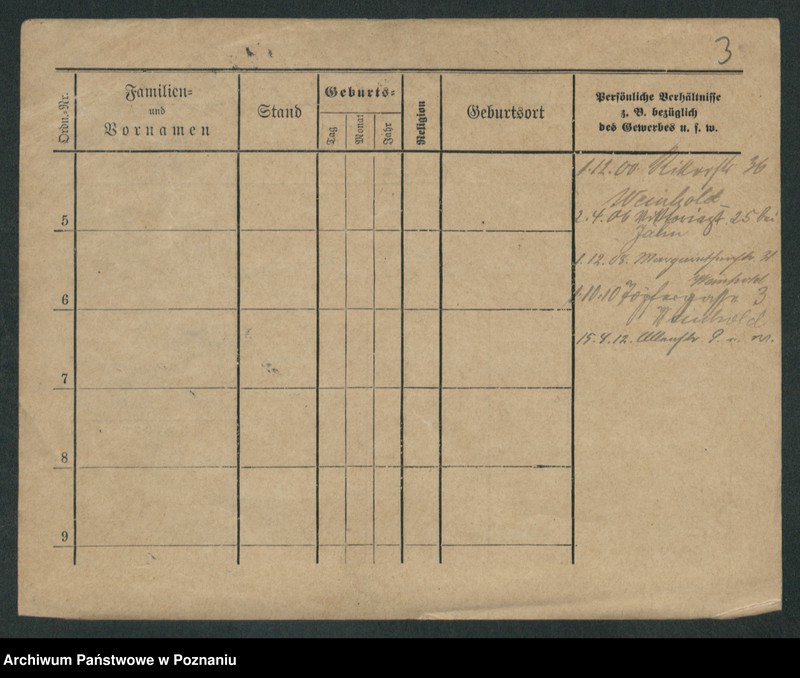 3
Ordn.-Nr.
Familien-
und
Vornamen
Stand
Geburts-
Tag
Monat
Jahr
Religion
Geburtsort
Persönliche Verhältnisse
z. B. bezüglich
des Gewerbes u. s. w.
1.12.00 36
Weinhold
5
2.4.06 25 bei
Jahn
1.12.08.
Weinhold
6
1.10.10 Töpfergasse 3
Weinhold
15.4.12. 9
7
8
9
Archiwum Państwowe w Poznaniu